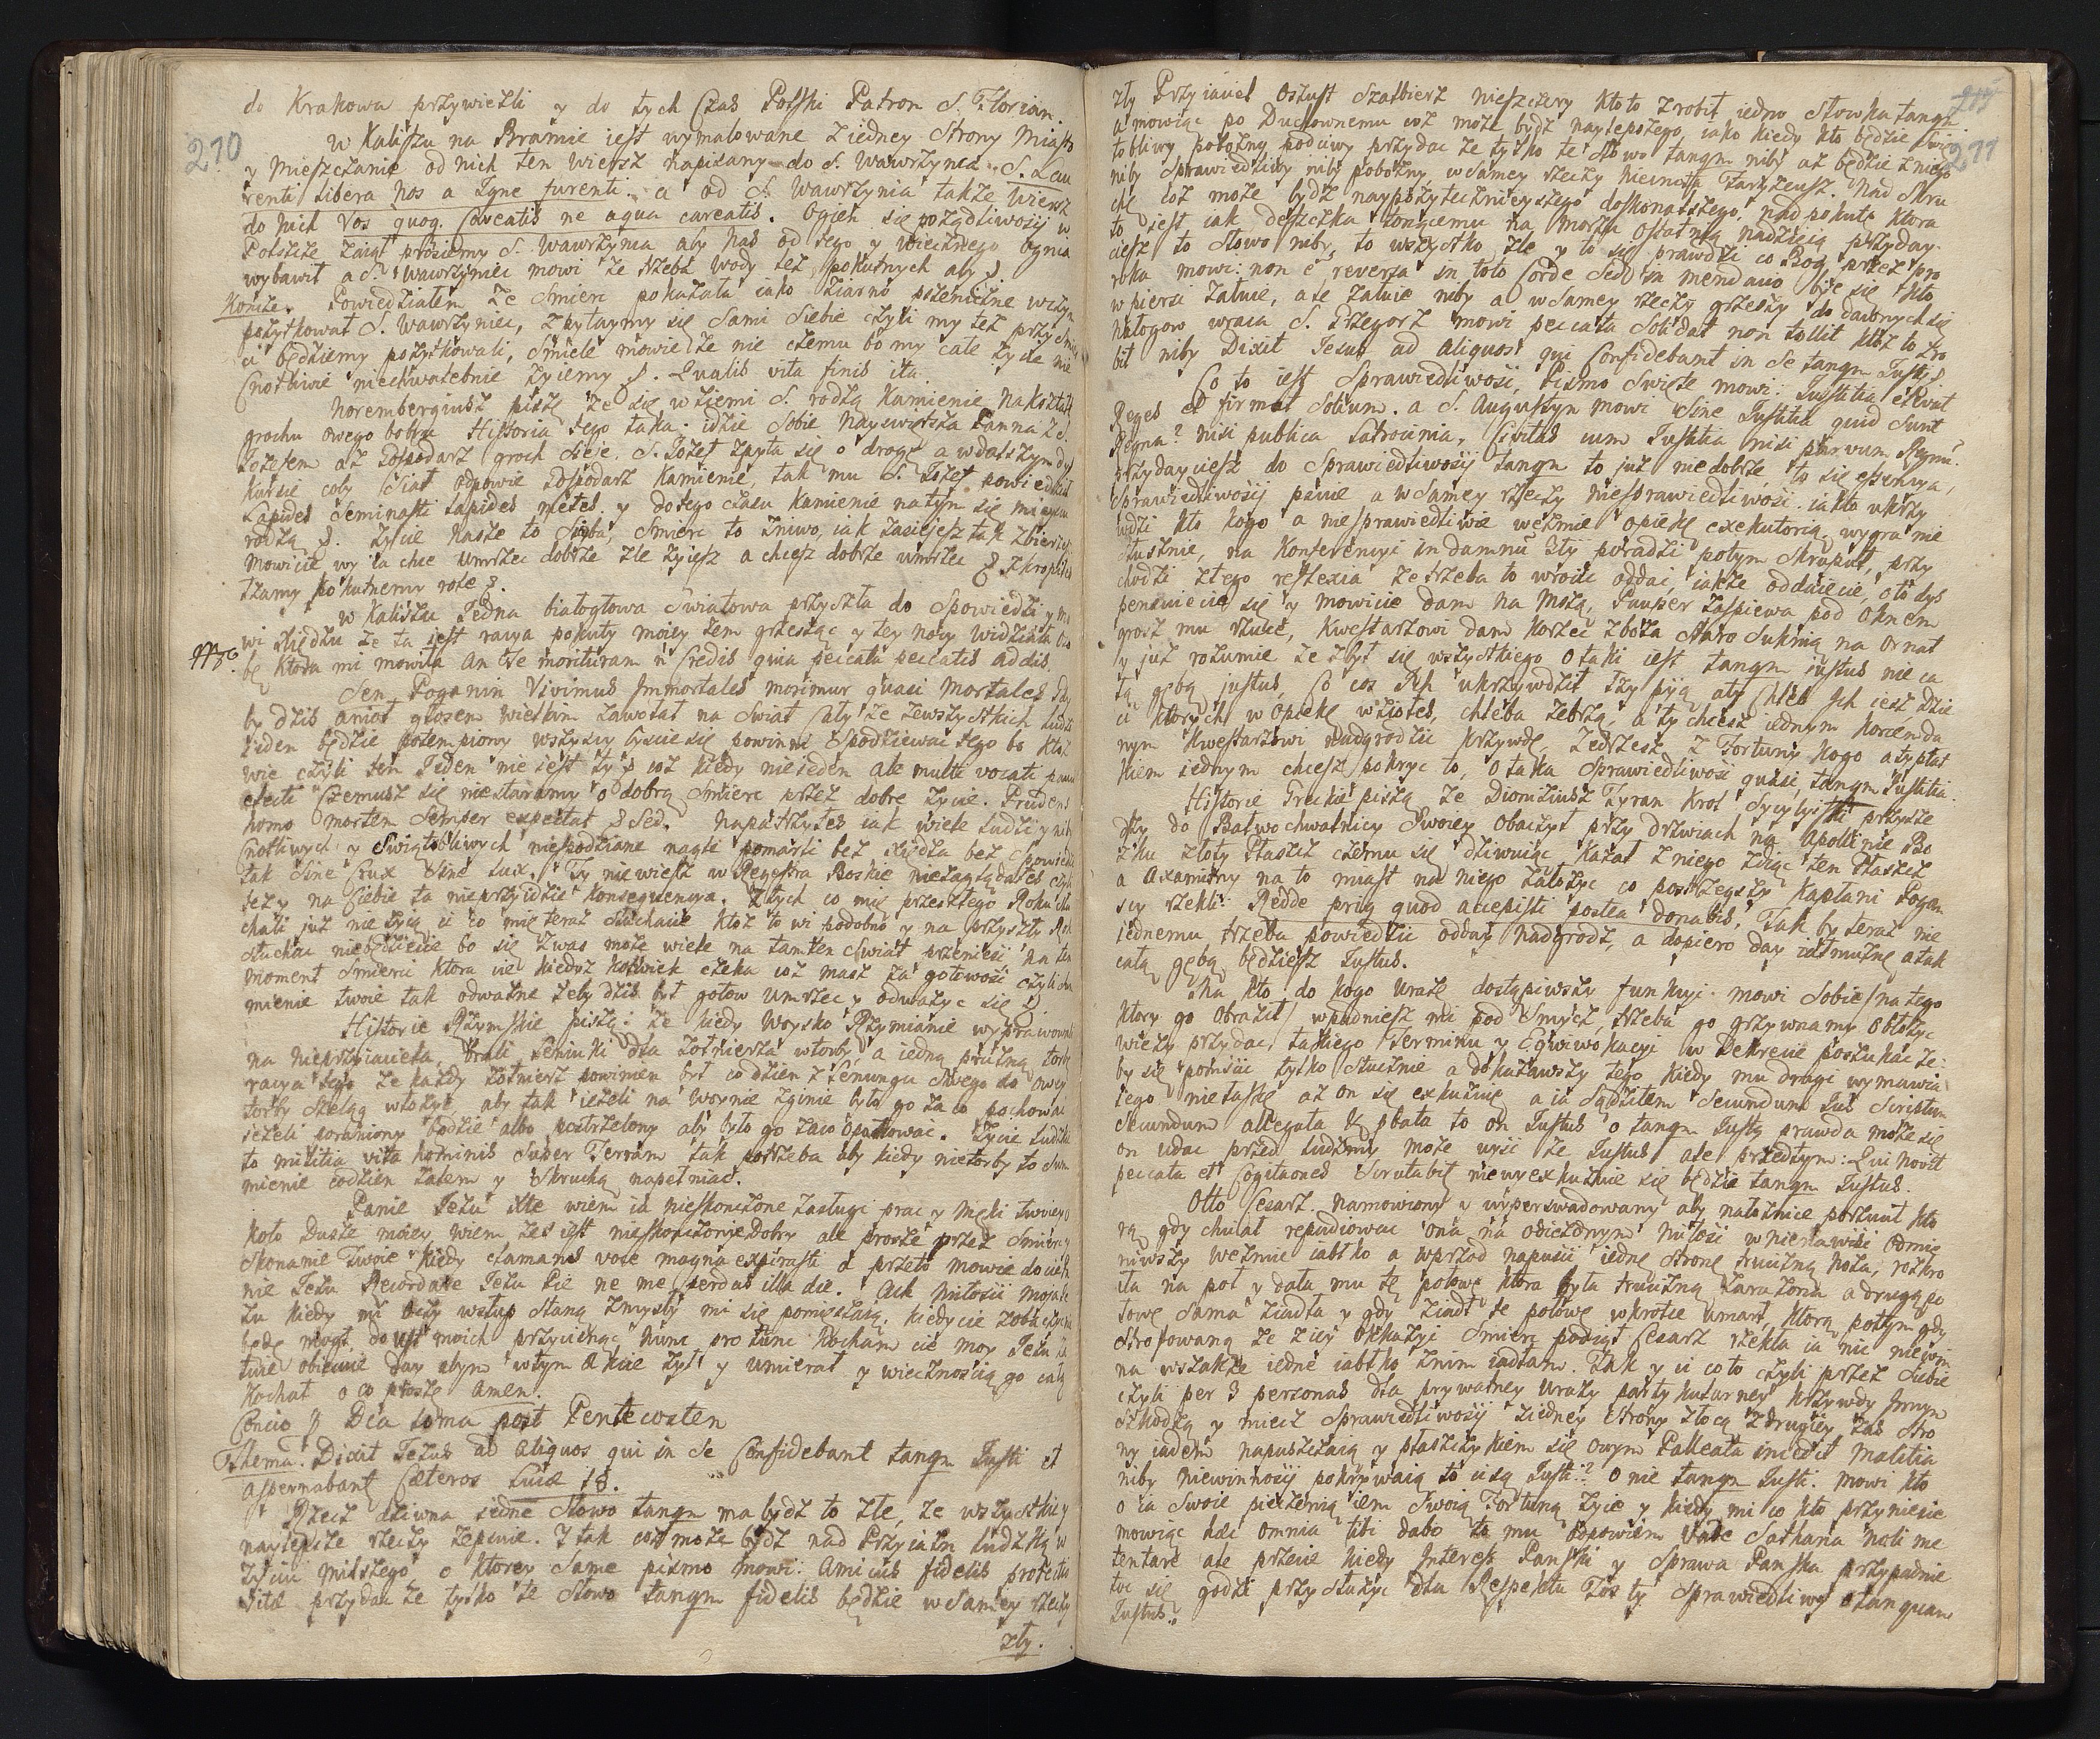 210
do Krakowa przywiezli y do tych Czas Polski Patron S. Floryan.
w Kaliszu na Bramie iest wymalowane z iedney Strony Miasto
y Mieszczanie od nich ten Wiersz napisany do S. Wawrzynca S. Lau
renti libera nos a Igne furenti. a od S. Wawrzynca także Wiersz
do nich Vos quoq. Caveatis ne aqua careatis. Ogień się pożądliwosij w
Polszcze zaiął prosiemy S. Wawrzynca aby nas od tego y wiecznego ognia
wybawił a S. Wawrzyniec mowi że trzeba wody łez pokutnych aby
Kończe. Powiedziałem że Smierc pokazała iako ziarno pszeniczne wiele
pożytkował S. Wawrzyniec, zpytaymy się Sami Siebie czyli my też przy
ci będziemy pożytkowali, Smiele mowie że nie czemu bo my całe życie nie
Cnotliwie niechwalebnie żyiemy. Qualis vita finis ita.
Norembergiusz pisze że się w ziemi S. rodzą Kamienie na kształt
grochu owego bobru Historia tego taka: idzie Sobie Nayswiętsza Panna z S.
Jozefem aż Gospodarz groch Sieje. S. Jozef zpyta się o drogę a w dalszym dys
kursie coby Siał odpowie Gospodarz Kamienie, tak mu S. Jozef powiedział
Lapides Seminasti lapides metes. y dotego czasu kamienie na tym się mieyscu
rodzą. Życie nasze to Sieyba, Smierc to Żniwo, iak zasiejesz tak zbierzesz
mowicie wy ia chce umrzec dobrze zle żyiesz a chcesz dobrze umrzec
łzamy pokutnemu role.
w Kaliszu Jedna białogłowa Swiatowa przyszła do Spowiedzi y mo
wi Xiędzu że ta iest racya pokuty moiey żem grzesząc y tey nocy widziała oso
bę ktora mi mowiła An te morituram n Credis quia peccata peccatis addis.
Sen. Poganin Vivimus Immortales morimur quasi mortales gdy
by dzis anioł głosem wielkim zawołał na Swiat Cały że zewszystkich ludzi
ieden będzie potempiony wszyscy byscie się powinni Spodziewac tego bo ktoż
wie czyli ten Jeden nie iest ty coż kiedy nie ieden ale multi vocati pauci
electi Czemusz się niestaramy o dobrą Smierc przez dobre życie. Prudens
homo mortem Semper expectat Sed. Napatrzyłes iak wiele ludzi y niby
Cnotliwych y Swiątobliwych niespodzianie nagle pomarli bez Xiędza bez Spowiedzi
tak Sine Crux Sine lux. Ty niewiesz w Regestra Boskie niezaglądałes czyli
też y na Ciebie ta nieprzyidzie konsequencya. Z tych co mię przeszłego Roku słu
chali już nie żyią ci co mię teraz słuchacie ktoż to wi podobno y na przyszły Rok
słuchac niebędziecie bo się zwas może wiele na tamten Swiat przeniesc na ten
moment Smierci ktora cie kiedyż kolwiek czeka coż masz za gotowosc czyli su
mienie twoie tak odważne żeby dzis był gotow umrzec y odważyc się
Historie Rzymskie piszą: że kiedy Woysko Rzymianie wyprawowali
na nieprzyiaciela, brali Sieninki dla żołnierza wtorby, a iedną prużną torbę
racya tego że każdy żołnierz powinien był codzien z Senungu swego do owey
torby Szeląg włożyc, aby tak ieżeli na Woynie zginie było go za co pochowac
ieżeli poraniony będzie albo postrzelony aby było go zaco opatrowac. Życie ludzkie
to militia vita hominis Super Terram tak potrzeba aby kiedy nie torby to Sum
mienie codzien żalem y Skruchą napełniac.
Panie Jezu ile wiem ia nieskonczone zasługi prac y męki twoiey
koło Dusze moiey, wiem zes iest nieskonczenie Dobry ale prosze przez Smierc y
Skonanie Twoie kiedy clamans voce magna expirasti a przeto mowie do ciebie
nie Jezu Recordare Jezu Pie ne me perdas illa die. Ach miłosci moja Je
zu kiedy mi oczy wstup staną zmysły mi się pomieszaią. kiedy cie zobaczyc nie
będe mogł, do ust moich przycisnąc nunc pro tunc kocham cie moy Jezu za
twe obiecuie day abym wtym Akcie żył y umierał y wiecznoscią go całą
kochał o co prosze Amen.
Concio p Dca 10ma post Pentecosten
Thema. Dixit Jezus ad Aliquos qui in Se Confidebant tanqm Justi et
aspernabant Cæteros Lucæ 18.
Rzecz dziwna iedne Słowo tanqm ma bydz to złe, że wszystkie y
naylepsze rzeczy zepsuie. I tak coż może bydz nad Przyiazn ludzką w
życiu milszego o ktorey Same pismo mowi: Amicus fidelis protectio
Vitæ przydac że tylko te Słowo tanqm fidelis będzie w Samey rzeczy
zły.
211
zły Przyiaciel Oszust Szalbierz nieszczery kto to zrobił iedno Słowka tanqm
a mowiąc po Duchownemu coż może bydz naylepszego, iako kiedy kto będzie Swią
tobliwy pobożny poducy przydac że tylko te słowo tanqm niby aż będzie zniego
niby Sprawiedliwy niby pobożny, w Samey rzeczy niecnota Faryzeusz. Nad Skru
chę coż może bydz naypożytecznieyszego doskonalszego, nad pokutę ktora
to iest iak deszczka tonącemu na morzu ostatnią nadzieią przyday
ciesz to słowo niby, to wszystko złe y to się prawdzi co Bog przez Pro
roka mowi: non e reversa in toto Corde Sed in mendacio bie się kto
w piersi żałuie, ale żałuie niby a w Samey rzeczy grzeszy do dawnych się
nałogow wraca S. Grzegorz mowi peccata Solidat non tollit ktoż to zro
bił niby Dixit Jesus ad aliquos qui Confidebant in Se tanqm Justi
Co to iest Sprawiedliwosc, Pismo Swięte mowi: Justitia elevat
Reges et firmat Solium. a S. Augustyn mowi Sine Justitia quid Sunt
Regna? nisi publica Latrocinia, Civitas cum Justitia nisi parvum Regnu.
przydayciesz do Sprawiedliwosij tanqm to już niedobrze, to się
Sprawiedliwosij psuie a w Samey rzeczy niesprawiedliwosc. iak kto ukrzy
wdzi kto kogo a niesprawiedliwie weźmie opiekę exekutorią, wygra nie
słusznie, na Konferencyi in damnu 3tij poradzi potym Skrupuł, przy
chodzi ztego reflexia że trzeba to wrocic oddac, iakże oddaiecie, oto dys
pensuiecie się y mowicie dam na Mszą, Pauper zaspiewa pod Oknem
grosz mu rzuce, Kwestarzowi dam Korzec zboża Staro Suknią na Ornat
y już rozumie że zbył się wszystkiego otaki iest tanqm iustus nie ca
łą gębą justus, Co coż Ich ukrzywdził łzy piją aty Chleb Ich iesz, dzie
ci ktorych w opiekę wziołes, chleba żebrzą, a ty chcesz iednym korcem da
nym Kwestarzowi nadgrodzic krzywdę, zedrzesz z Fortuny kogo a ty płasz
kiem iednym chcesz pokryc to, o taka Sprawiedliwosc quasi, tanqm Justitia.
Historie Greckie piszą że Dioniziusz Tyran Krol Sycyliyski przysze
dszy do Bałwochwalnicy Swoiey obaczył przy drzwiach na Apollinie Bo
żku złoty Płaszcz czemu się dziwuiąc kazał zniego zdiąc ten Płaszcz
a Axamitny na to miast na niego założyc co postrzegszy Kapłani Pogan
scy rzekli: Redde prius quod accepisti postea donabis, Tak by teraz nie
iednemu trzeba powiedziec odday nadgrodz, a dopiero day iałmużnę a tak
całą gębą będziesz Justus.
Ma kto do kogo urazę dostąpiwszy funkcyi mowi Sobie na tego
ktory go obraził wpadniesz mi pod Smycz, trzeba go grzywnamy obłożyc
wieży przydac, takiego Terminu y Eqwiwokacyi w Dekrecie poszukac że
by się pomscic tylko słusznie a dokazawszy tego kiedy mu drugi wymawia
tego niełaskę aż on się exkuzuie a ia Sądziłem Secundum Jus Scriptum
Secundum allegata & pbata to on Justus o tanqm Justus prawda może się
on udac przed ludzmy może uysc że Justus ale przedtym: Qui novit
peccata et Cogitaones Scrutabit niewyexkuzuie się będzie tanqm Justus.
Otto Cesarz namowiony y wyperswadowany aby nałożnice porzucił kto
rą gdy chciał repudiowac ona na odiezdnym miłosc wnienawisc odmie
niwszy wezmie iabłko a wprzod napusci iedne strone trucizną noża, rozkro
iła na poł y dała mu tę połowę ktora była trucizną zarażona a drugą po
łowę Sama ziadła y gdy ziadł te połowę wkrotce umarł, ktorą potym gdy
strofowano że z iey okkazyi Smierc podiął Cesarz rzekła ia nic niewin
na wszakże iedne iabłko z nim iadłam. Tak y ci co to czyli przez Siebie
czyli per 3 personas dla prywatney urazy partykularney krzywdy Innym
szkodzą y miecz Sprawiedliwosij ziedney strony złocą zdrugiey zas stro
ny iadem napuszczaią y płaszczykiem się owym Palleata incedit malitia
niby niewinnosij pokrywaią to ci są Justi? o nie tanqm Justi. mowi kto
o ia Swoie pieczenią iem Swoią Fortuną żyie y kiedy mi co kto przyniesie
mowiąc hæc omnia tibi dabo to mu odpowiem Vade Sathana noli me
tentare ale przecie kiedy Interess Panski y Sprawa Panska przypadnie
toc się godzi przysłużyc dla Respektu Tos ty Sprawiedliwy o tanquam
Justus.